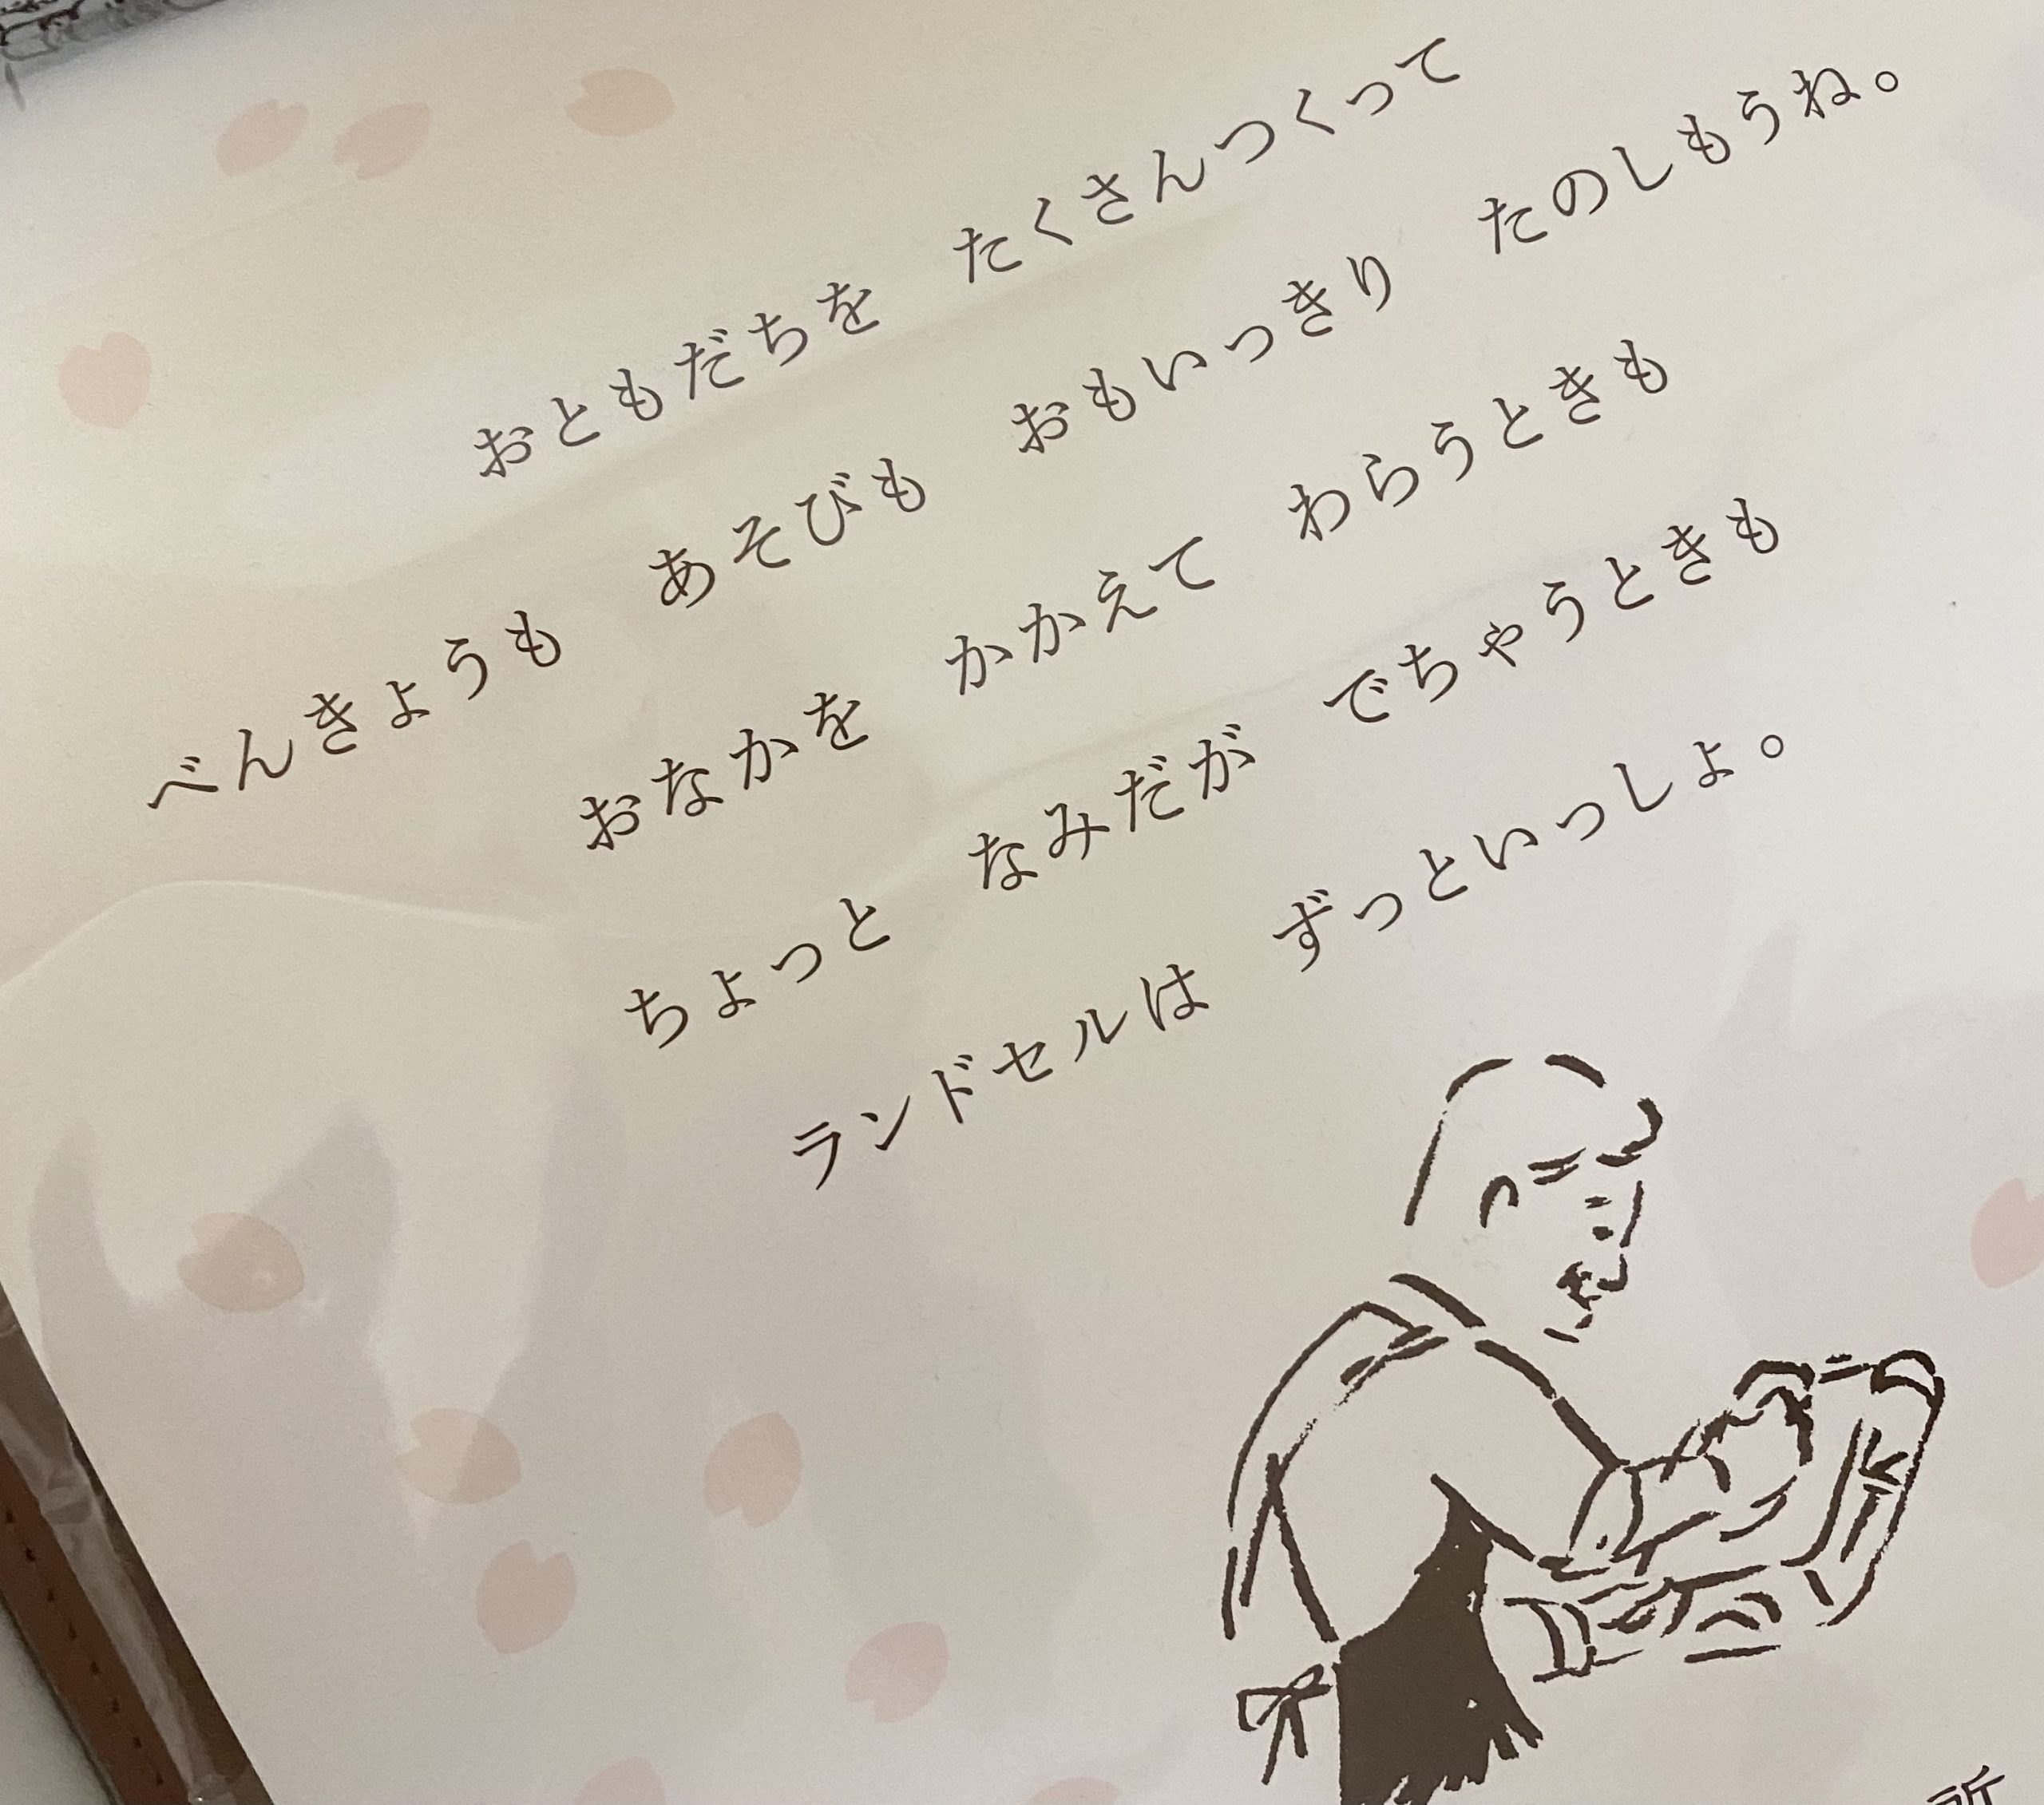 おともだちを　たくさんつくって
べんきょうも　あそびも　おもいっきり　たのしもうね。
おなかを　かかえて　わらうときも
ちょっと　なみだが　でちゃうときも
ランドセルは　ずっといっしょ。